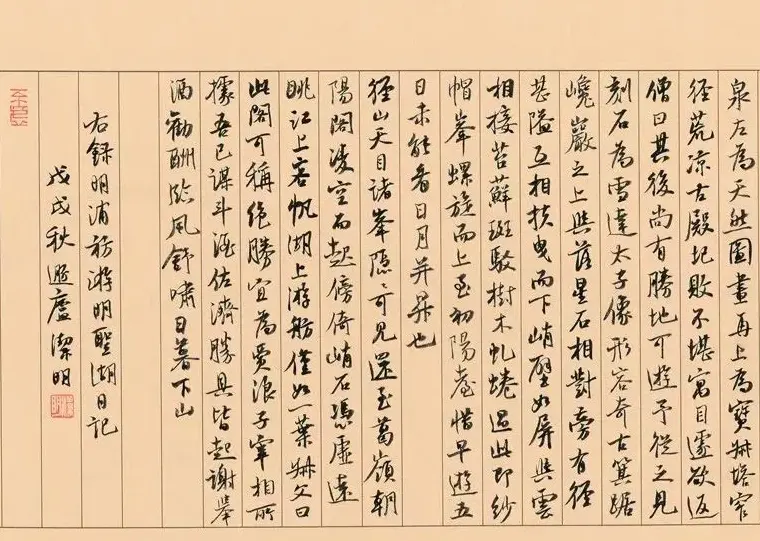 泉左為天然圖畫再上為寶叔塔窄
徑荒凉古殿圮敗不堪寓目遽欲返
僧曰其後尚有勝地可遊予從之見
刻石為雪達太子像形容奇古箕踞
巉巖之上與落星石相對旁有徑
甚隘互相扶曳而下峭壁如屏與雲
相接苔蘚斑駁樹木虬蜷過此即紗
帽峯螺旋而上至初陽臺惜早遊五
日未能看日月并昇也
徑山天目諸峯隱〻可見還至葛嶺朝
陽閣凌空而起傍倚峭石憑虛遠
眺江上客帆湖上游舫僅如一葉叔父曰
此閣可稱絕勝宜為賈浪子宰相所
據吾已謀斗酒佐濟勝具皆起謝舉
酒勸酬臨風舒嘯日暮下山
右錄明浦祊游明聖湖日記
戊戌秋廬潔明